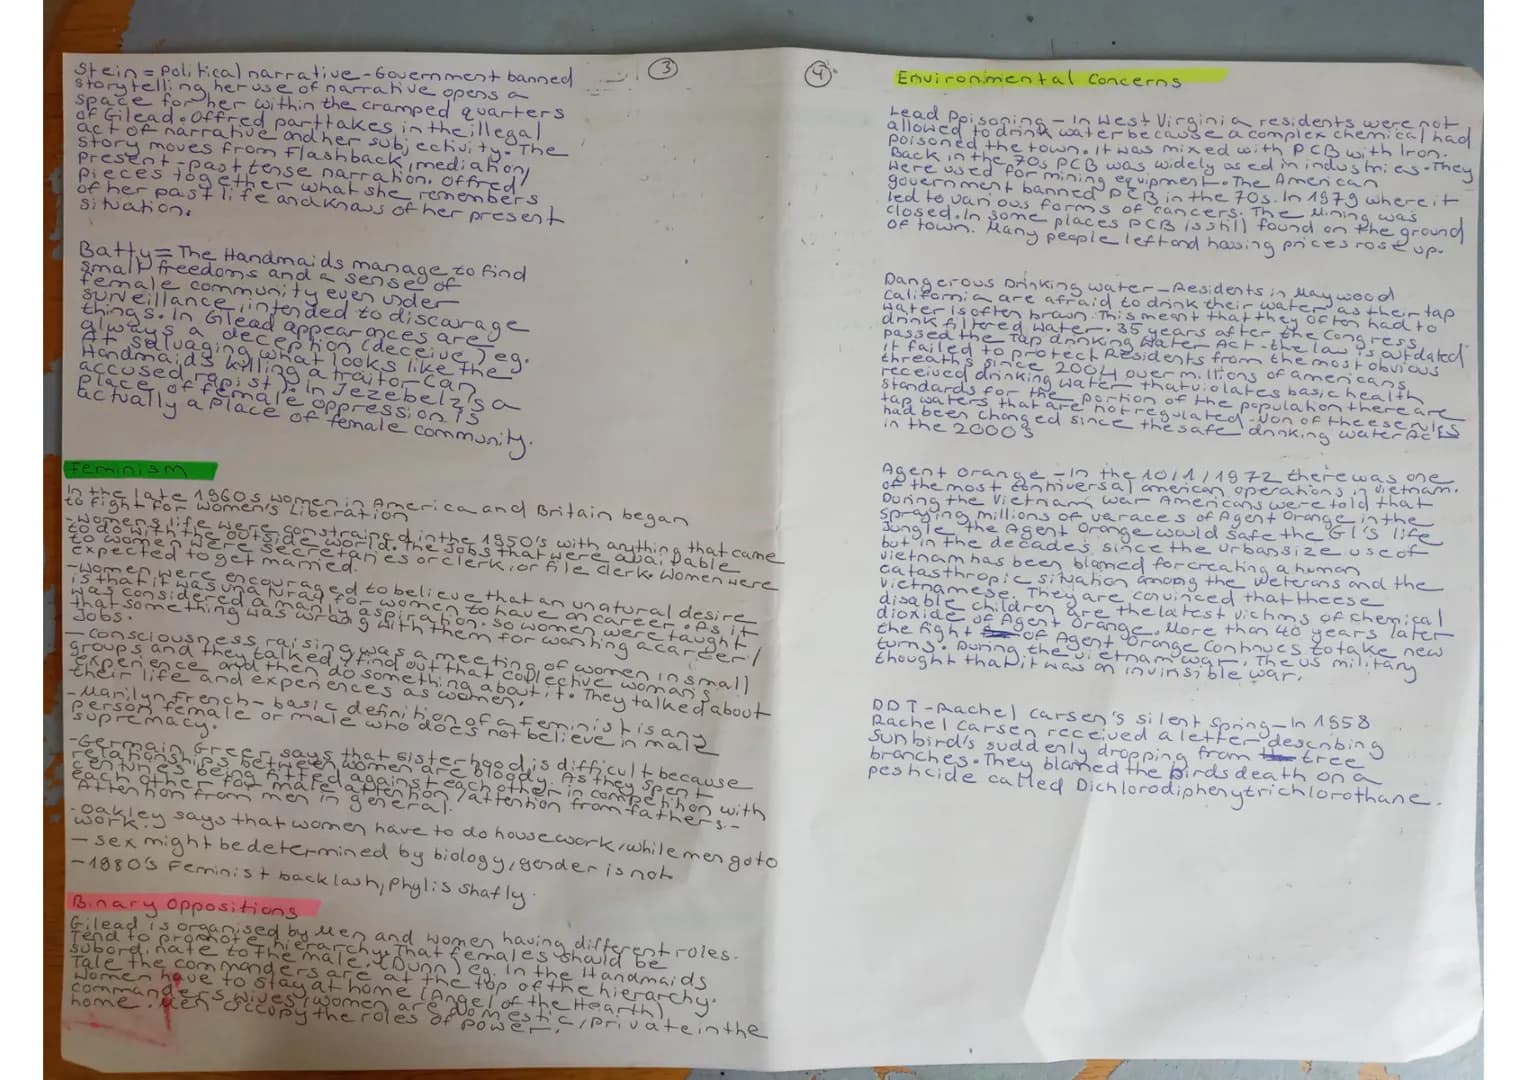 3
Stein = Political narrative - Government banned
storytelling, her use of narrative opens a
space for her within the cramped quarters
of Gilead. Offred parttakes in the illegal
act of narrative and her subjectivity. The
story moves from flashback, mediation,
Present - past tense narration. Offred,
Pieces together what she remembers
of her past life and knows of her present
situation.
Batty = The Handmaids manage to find
small freedoms and a sense of
female community even under
surveillance, intended to discourage
things. In Gilead appearances are
always a deception (deceive) eg.
At salvaging what looks like the
Handmaids killing a traitor can
accused rapist). In Jezebelz's a
Place of female oppression is
actually a place of female community.
Feminism
In the late 1960s women in America and Britain began
to fight for women's Liberation
-Womens life were constrained in the 1950's with anything that came
to do with the outside world. The jobs that were available
to women were secretaries or clerk, or file clerk. Women were
expected to get married.
-Women were encouraged to believe that an unatural desire
is that it was unatural for women to have an career. As it
was considered a manly aspiration. So women were taught
that something was wrong with them for wanting a career/
Jobs.
- Consciousness raising was a meeting of women in small
groups and they talked, find out that collective woman's
experience and then do something about it. They talked about
their life and experiences as women.
-Marilyn French - basic definition of a Feminist is any
person female or male who does not believe in male
supremacy.
-Germain Greer says that sisterhood is difficult because
relationships between women are bloody. As they spent
centuries being pitted against each other in competition with
each other for male attention, attention from fathers.-
Attention from men in general.
-Oakley says that women have to do housework, while men go to
work.
- sex might be determined by biology, gender is not.
-1980's Feminist backlash, Phylis Shafly.
Binary Oppositions
Gilead is organised by Men and women having different roles.
Tend to promote hierarchy. That females should be
subordinate to the male. (Dunn) eg. In the Handmaids
Tale the commanders are at the top of the hierarchy.
Women have to stay at home (Angel of the Hearth)
commanders wives, women are Domestic, private in the
home. Men occupy the roles of power.
4
Environmental Concerns
Lead Poisoning - In West Virginia residents were not
allowed to drink water because a complex chemical had
poisoned the town. It was mixed with PCB with Iron.
Back in the 70s PCB was widely used in industries. They
were used for mining equipment. The American
government banned PCB in the 70s. In 1979 where it
led to various forms of cancers. The Mining was
closed. In some places PCB is still found on the ground
of town. Many people left and hosing prices rose up.
Dangerous Drinking water - Residents in Maywood
California are afraid to drink their water as their tap
water is often brown. This meant that they often had to
drink filtered water. 35 years after the Congress
passed the Tap drinking water Act - the law is outdated
it failed to protect Residents from the most obvious
threats. Since 2004 over millions of americans
received drinking water that violates basic health
standards for the portion of the population there are
tap waters that are not regulated. Non of theese rules
had been changed since the safe drinking water Acts
in the 2000's
Agent Orange - In the 10/1/1972 there was one
of the most contriversal american operations in vietnam.
During the Vietnam war Americans were told that
spraying millions of varaces of Agent Orange in the
Jungle the Agent Orange would safe the GI's life
but in the decades since the urbansize use of
vietnam has been blamed for creating a human
catasthropic situation among the weterans and the
vietnamese. They are convinced that theese
disable children are the latest victims of chemical
dioxide of Agent Orange. More than 40 years later
the fight of Agent Orange continues to take new
turns. During the vietnam war. The us military
thought that it was an invinsible war.
DDT - Rachel Carsen's silent spring - In 1958
Rachel Carsen received a letter describing
sunbird's suddenly dropping from tree
branches. They blamed the birds death on a
pesticide called Dichlorodiphenytrichlorothane.